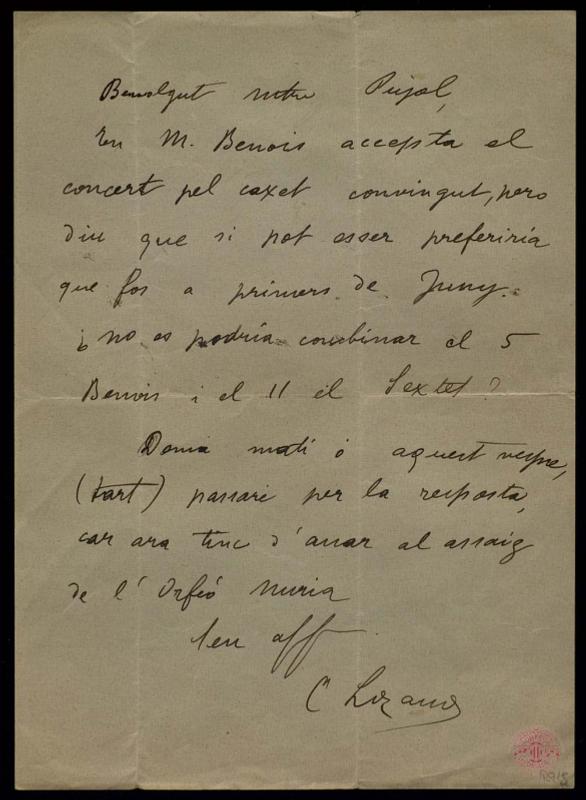 Benvolgut mtre Pujol,
En M. Benois accepta el
concert pel caxet convingut, pero
diu que si pot esser preferiria
que fos a primers de Juny.
¿no es podría combinar el 5
Benois i el 11 el Sextet?
Dema matí ó aquest vespre,
(tart) passaré per la resposta,
car ara tinc d'anar al assaig
de l'Orfeó Nuria
Seu aff
C Lozano